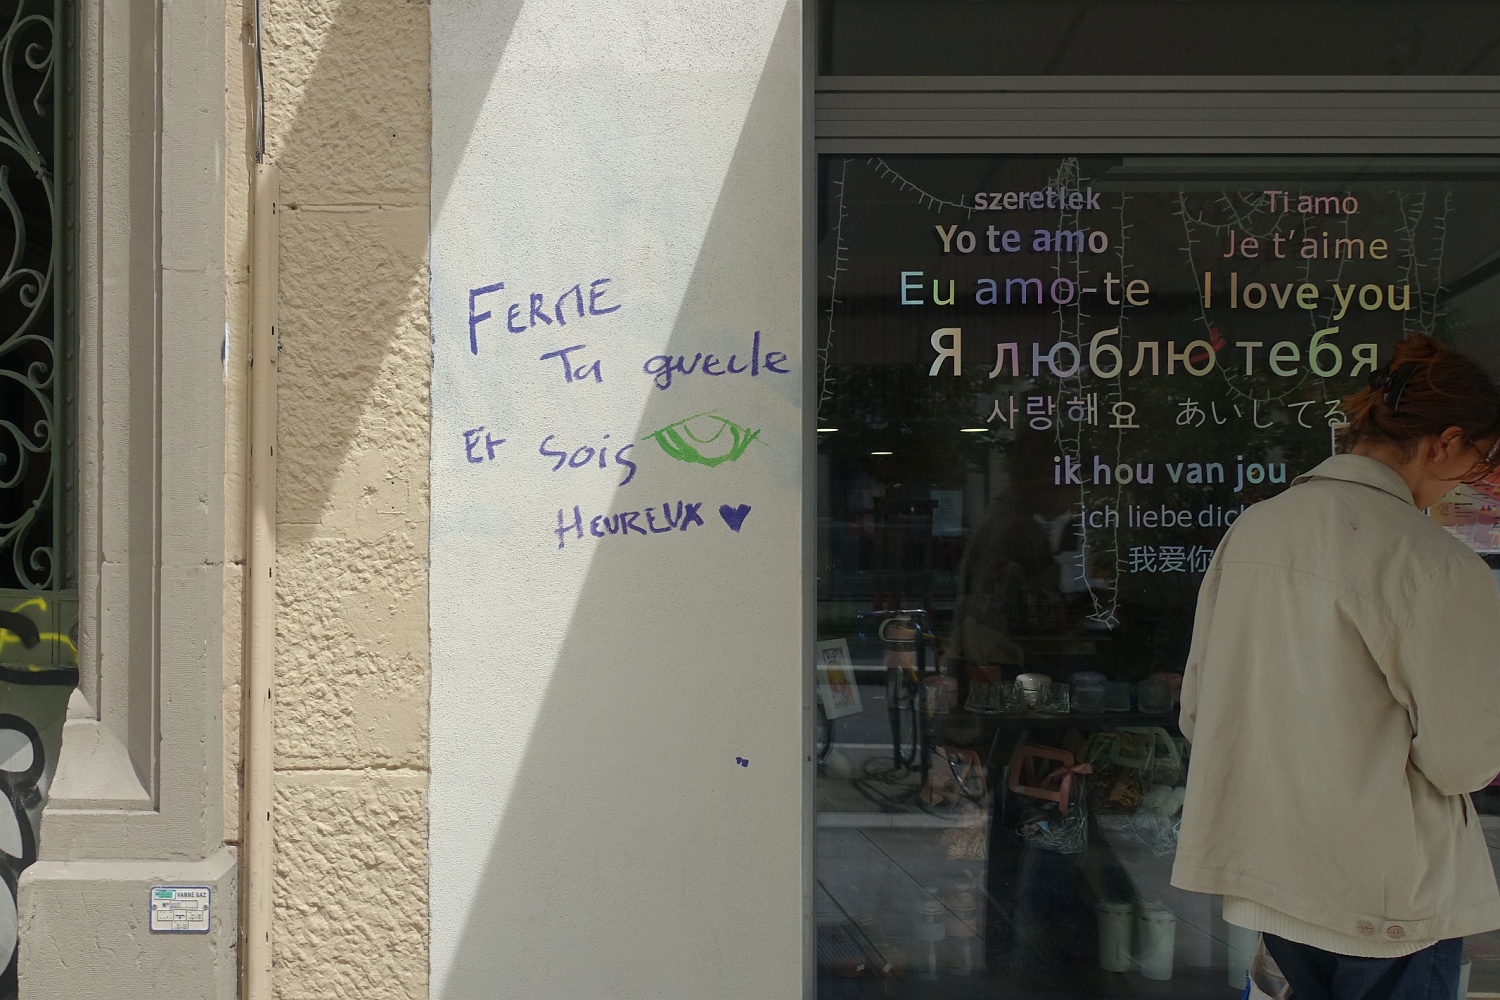 FERME
Ta gueule
Et Sois
HEUREUX
szeretlek
Ti amo
Yo te amo
Je t'aime
Eu amo-te
I love you
Я люблю тебя
사랑해요
あいしてる
ik hou van jou
ich liebe dich
我爱你
VANNE GAZ